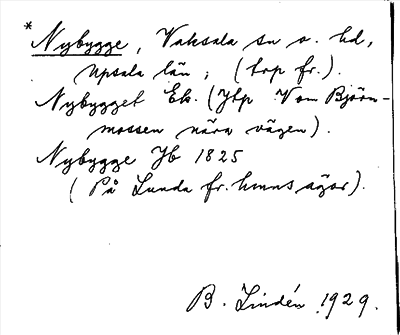 * Nybygge, Vaksala sn o. hd,
Upsala län; (torp fr.).
Nybygget Ek. (Jtp V om Björn-
mossen nära vägen).
Nybygge Jb 1825
(På Lunda fr. hmns ägor).
B. Lindén 1929.